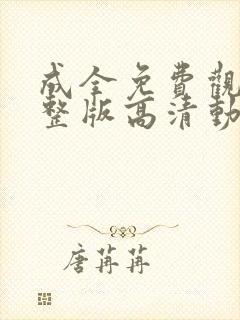 成全免費觀
整版高清動
唐苒苒